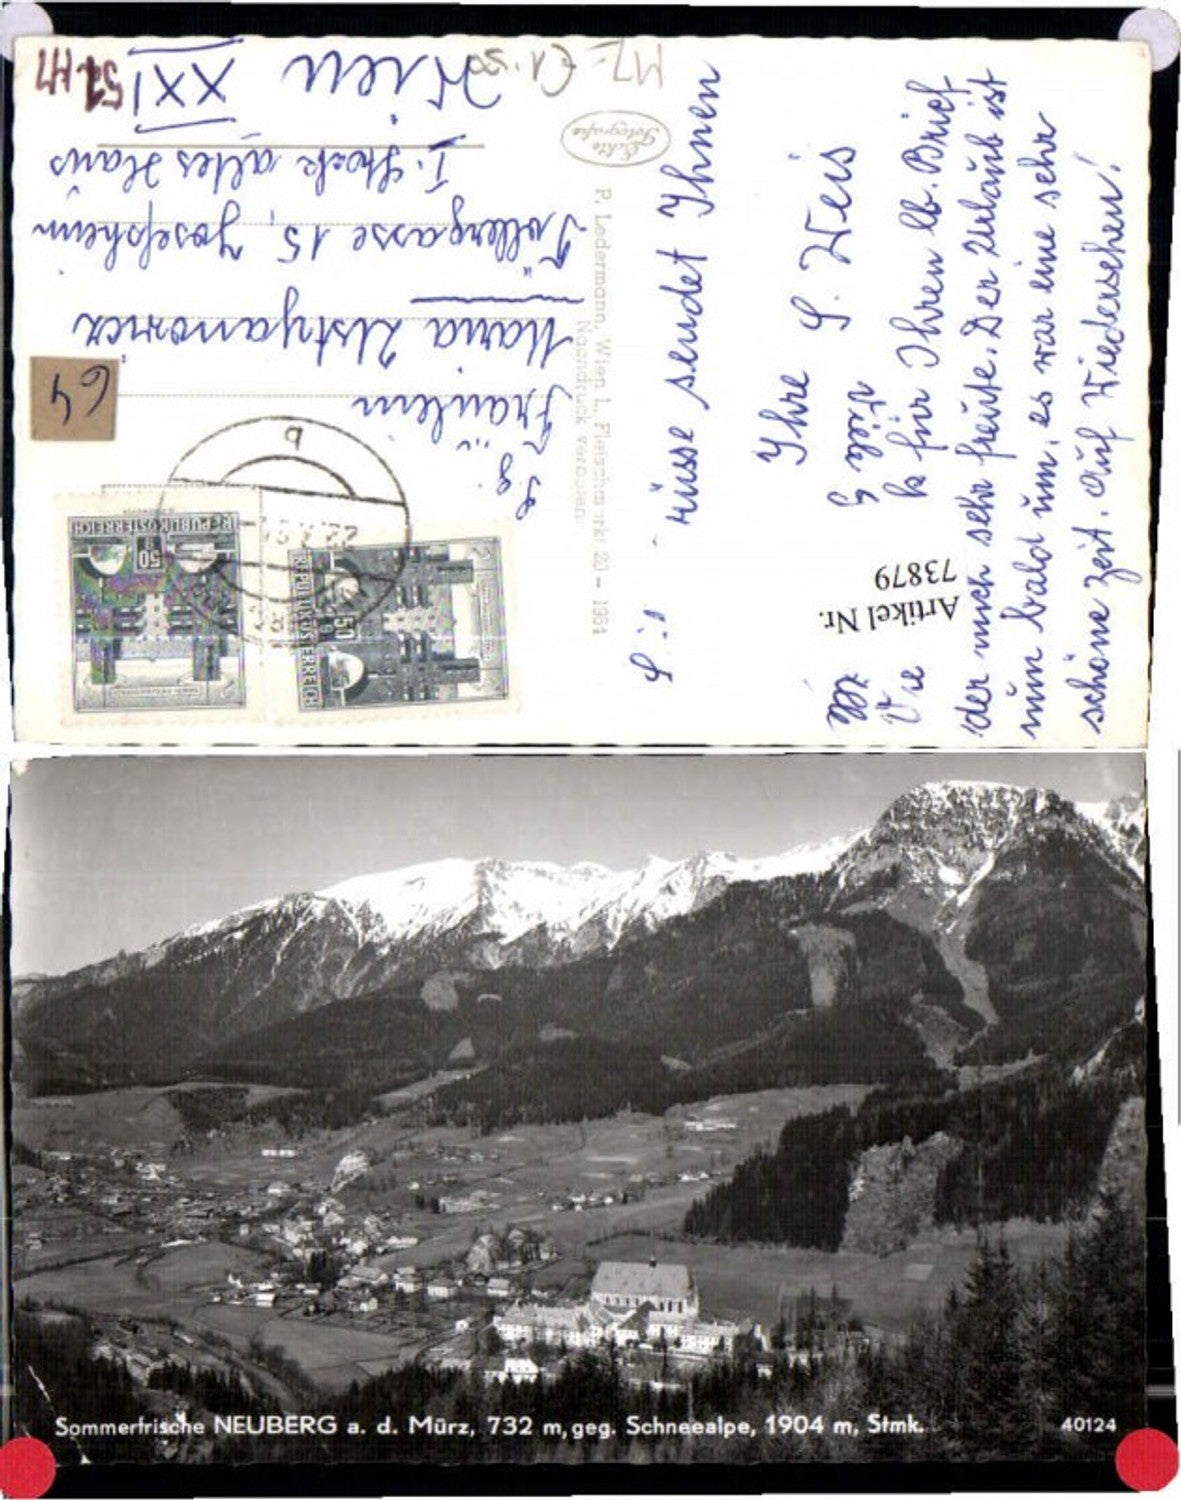 MZ - €1.50
52 H7
64
REPUBLIK ÖSTERREICH
50 g
REPUBLIK ÖSTERREICH
50 g
b
Echte
Fotografie
P. Ledermann, Wien I., Fleischmarkt 20 - 1961
Nachdruck verboten.
Sg.
Fräulein
Maria Ustyanovicz
Tüllergasse 15, Josefsheim
I. Stock altes Haus
Wien XXI
Artikel Nr.
73879
Vie k für Ihren lb. Brief
der mich sehr freute. Der Urlaub ist
nun bald um, es war eine sehr
schöne Zeit. Auf Wiedersehen!
Viele
G rüsse sendet Ihnen
Ihre S. Weis
Sommerfrische NEUBERG a. d. Mürz, 732 m, geg. Schneealpe, 1904 m, Stmk.
40124